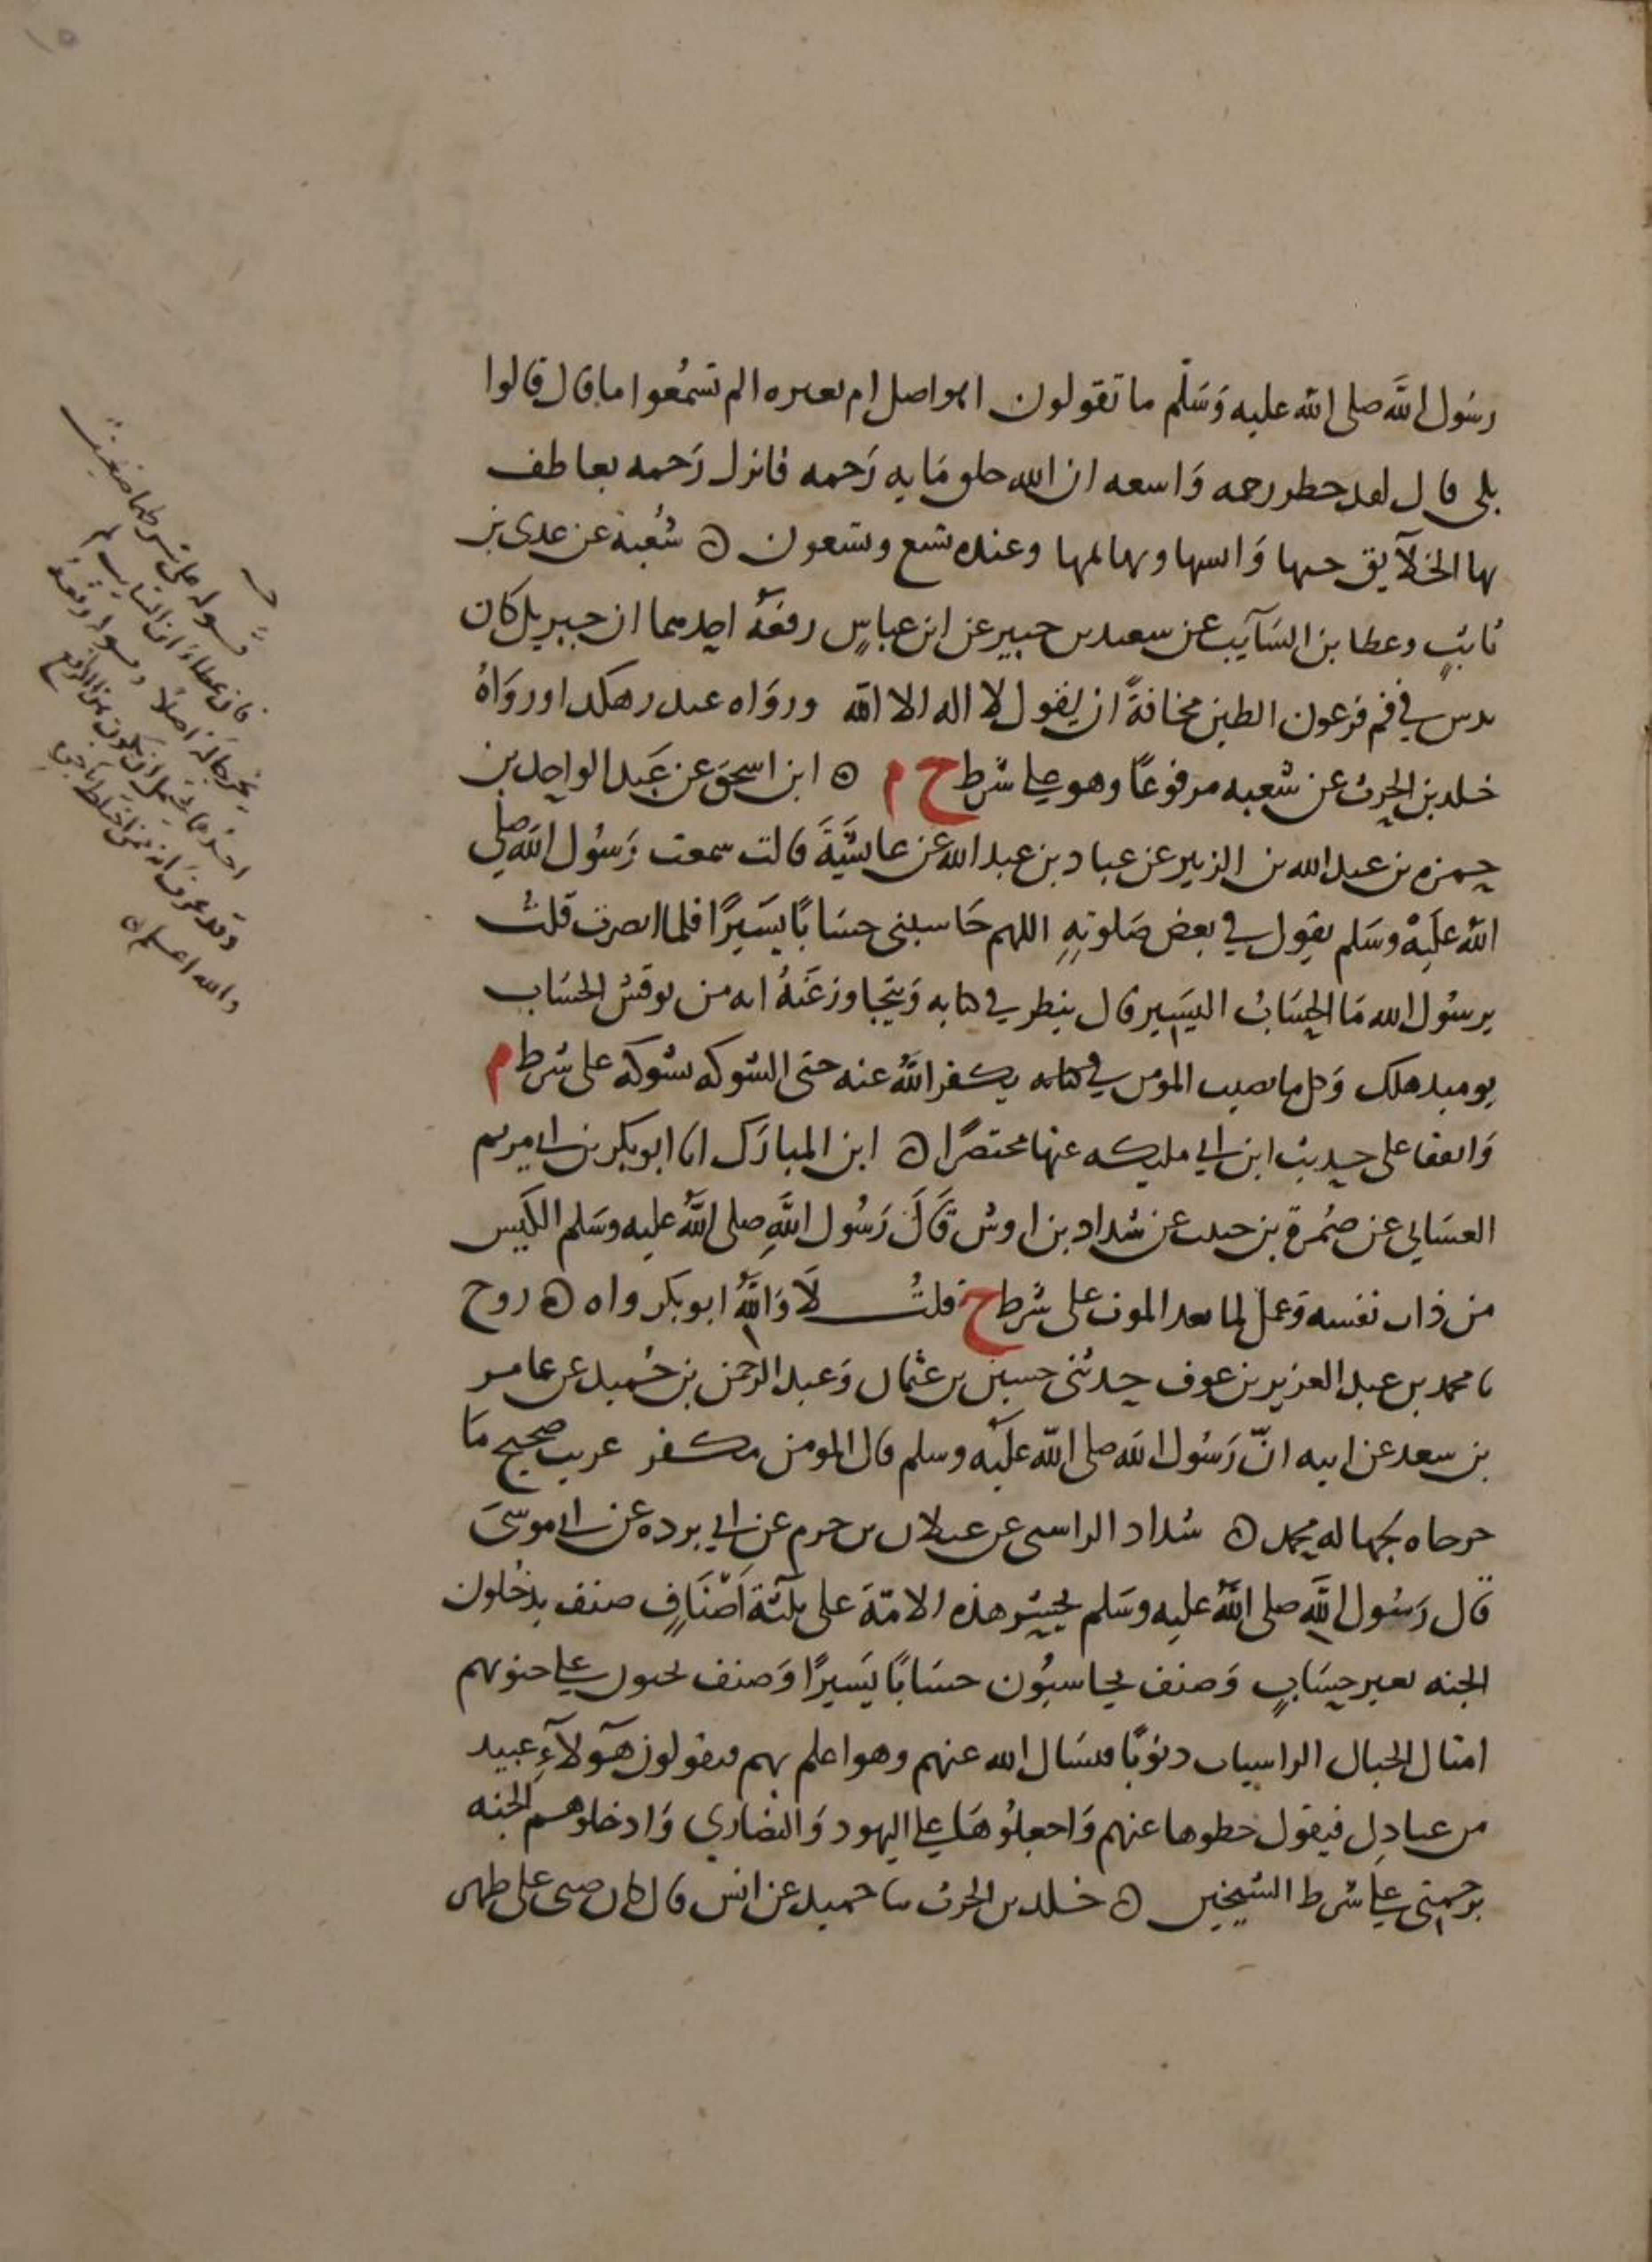 رسُول الله صلى الله عليه وَسَلّم ما تقولون اهو اضل ام بعيره الم تسمُعوا ما قال قالوا
بلى قال لقد حظر رحمه وَاسعه ان الله خلق مَايه رَحمه فانزل رَحمه يعاطف
بها الخلآيق جنها وَانسها وبهايمها وعنده تسع وتسعون ه شُعبة عن عدى بن
ثابتٍ وعطا بن السَآيب عن سعيد بن جبير عن ابن عباسٍ رفعَهُ احدهما ان جبريل كان
يدس في فم فرعون الطين مخافةً ان يقول لا اله الا الله ورَواه غندر هكذا ورَوَاهُ
خلد بن الحرث عن شعبه مرفوعًا وهو على شرط خ م ه ابن اسحق عن عَبد الواحد بن
حمزه بن عبد الله بن الزبير عن عباد بن عبد الله عن عايشَةَ قالت سمعت رَسُول الله صلى
الله عَلَيْه وسَلم يقول في بعض صَلوتِهِ اللهم حَاسبنى حسَابًا يسَيرًا فلما انصرف قلتُ
يرسُول الله مَا الحِسَابُ اليسَير قال ينظر في كتابه وَيتجاوز عَنهُ انه من نوقش الحسَاب
يوميد هلك وَكل ما يصيب المومن في كتابه يكفر اللهُ عنه حتى الشوكه تشوكه على شرط م
وَاتفقا على حديث ابن ابي مليكه عنها مختصرًا ه ابن المبارَك انا ابو بكر بن ابي مريم
الغسَاني عن ضمُرة بن حبيب عن شداد بن اوس قَالَ رَسُول اللهِ صلى اللهُ عليه وسَلم الكَيس
من دان نفسه وَعمل لما بعد الموت على شرط خ قلتُ لَا وَاللهِ ابو بكر واه ه روح
نا محمد بن عبد العزيز بن عوف حدثنى حسين بن عثمان وَعبد الرحمن بن حُميد عن عامر
بن سعد عن ابيه انّ رَسُول الله صلى الله عَليْه وسلم قال المومن مكفر غريب صحيح مَا
خرجاه لجهالة محمد ه شداد الراسبى عن غيلان بن جرير عن ابي برده عن ابي موسَى
قال رَسُول الله صلى اللهُ عليه وسَلم يحشر هذه الامّة على ثلثة اَصْنَافٍ صنف يدخُلون
الجنه بغير حسَابٍ وَصنف يحاسبُون حسَابًا يَسيرًا وَصنف يحبون على جنوبهم
امثال الجبال الراسيات ذنوبًا فيسَال الله عنهم وهو اعلم بهم فيقولون هَؤلآءِ عبيد
من عبادك فيقول حطوها عنهم وَاجعلُوهَا على اليهود وَالنصَاري وَادخلوهم الجنه
برحمتى على شرط الشيخين ه خلد بن الحرث نا حميد عن انس قال كان صبى على ظهر
فان عطاء ابن السايب لم
يخرجا له اصلاً
والله اعلم ه